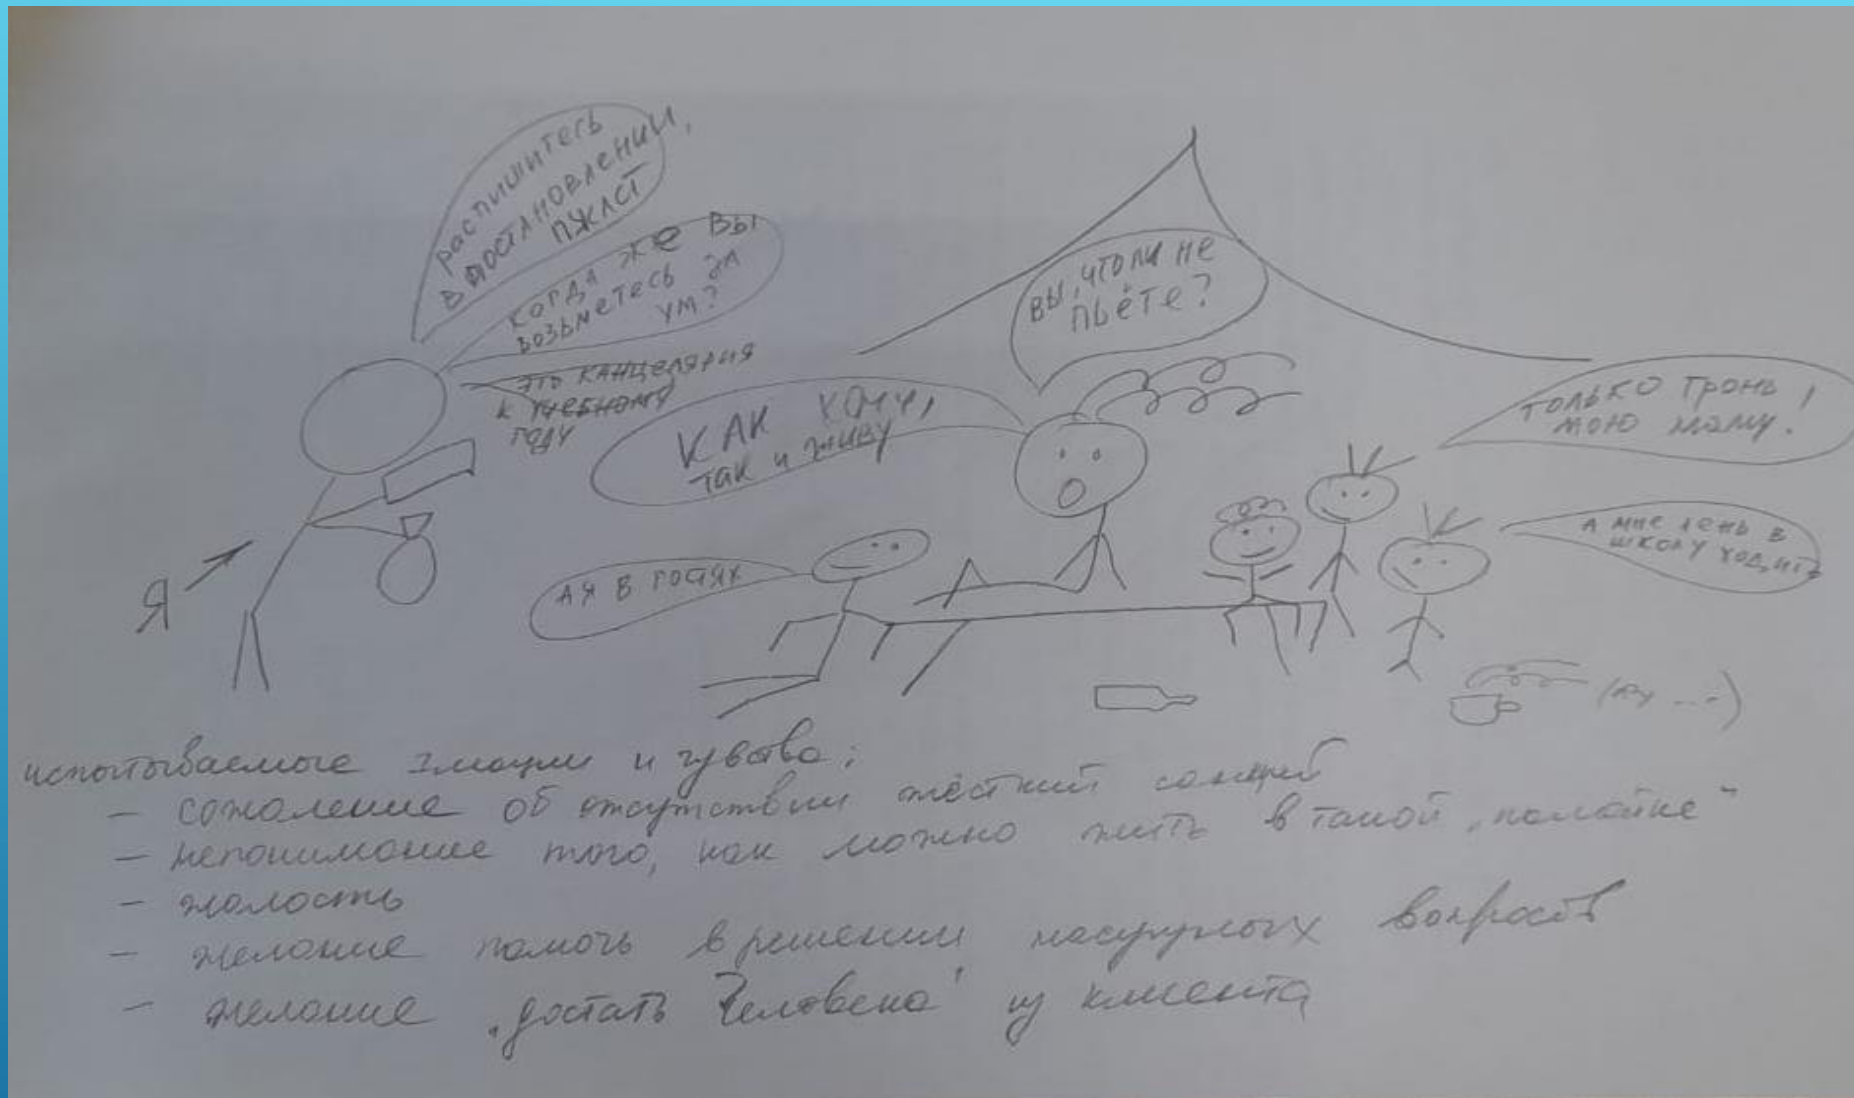 распишитесь
в постановлении,
пжлст
когда же вы
возьметесь за
ум?
это канцелярия
к учебному
году
Я
Вы, что ли не
пьёте?
КАК ХОЧУ,
так и живу
А Я В ГОСТЯХ
ТОЛЬКО ТРОНЬ
МОЮ МАМУ!
А мне лень в
школу ходить
испытываемые эмоции и чувства:
- сожаление об отсутствии жёстких санкций
- непонимание того, как можно жить в такой „помойке"
- жалость
- желание помочь в решении насущных вопросов
- желание „достать Человека" из клиента